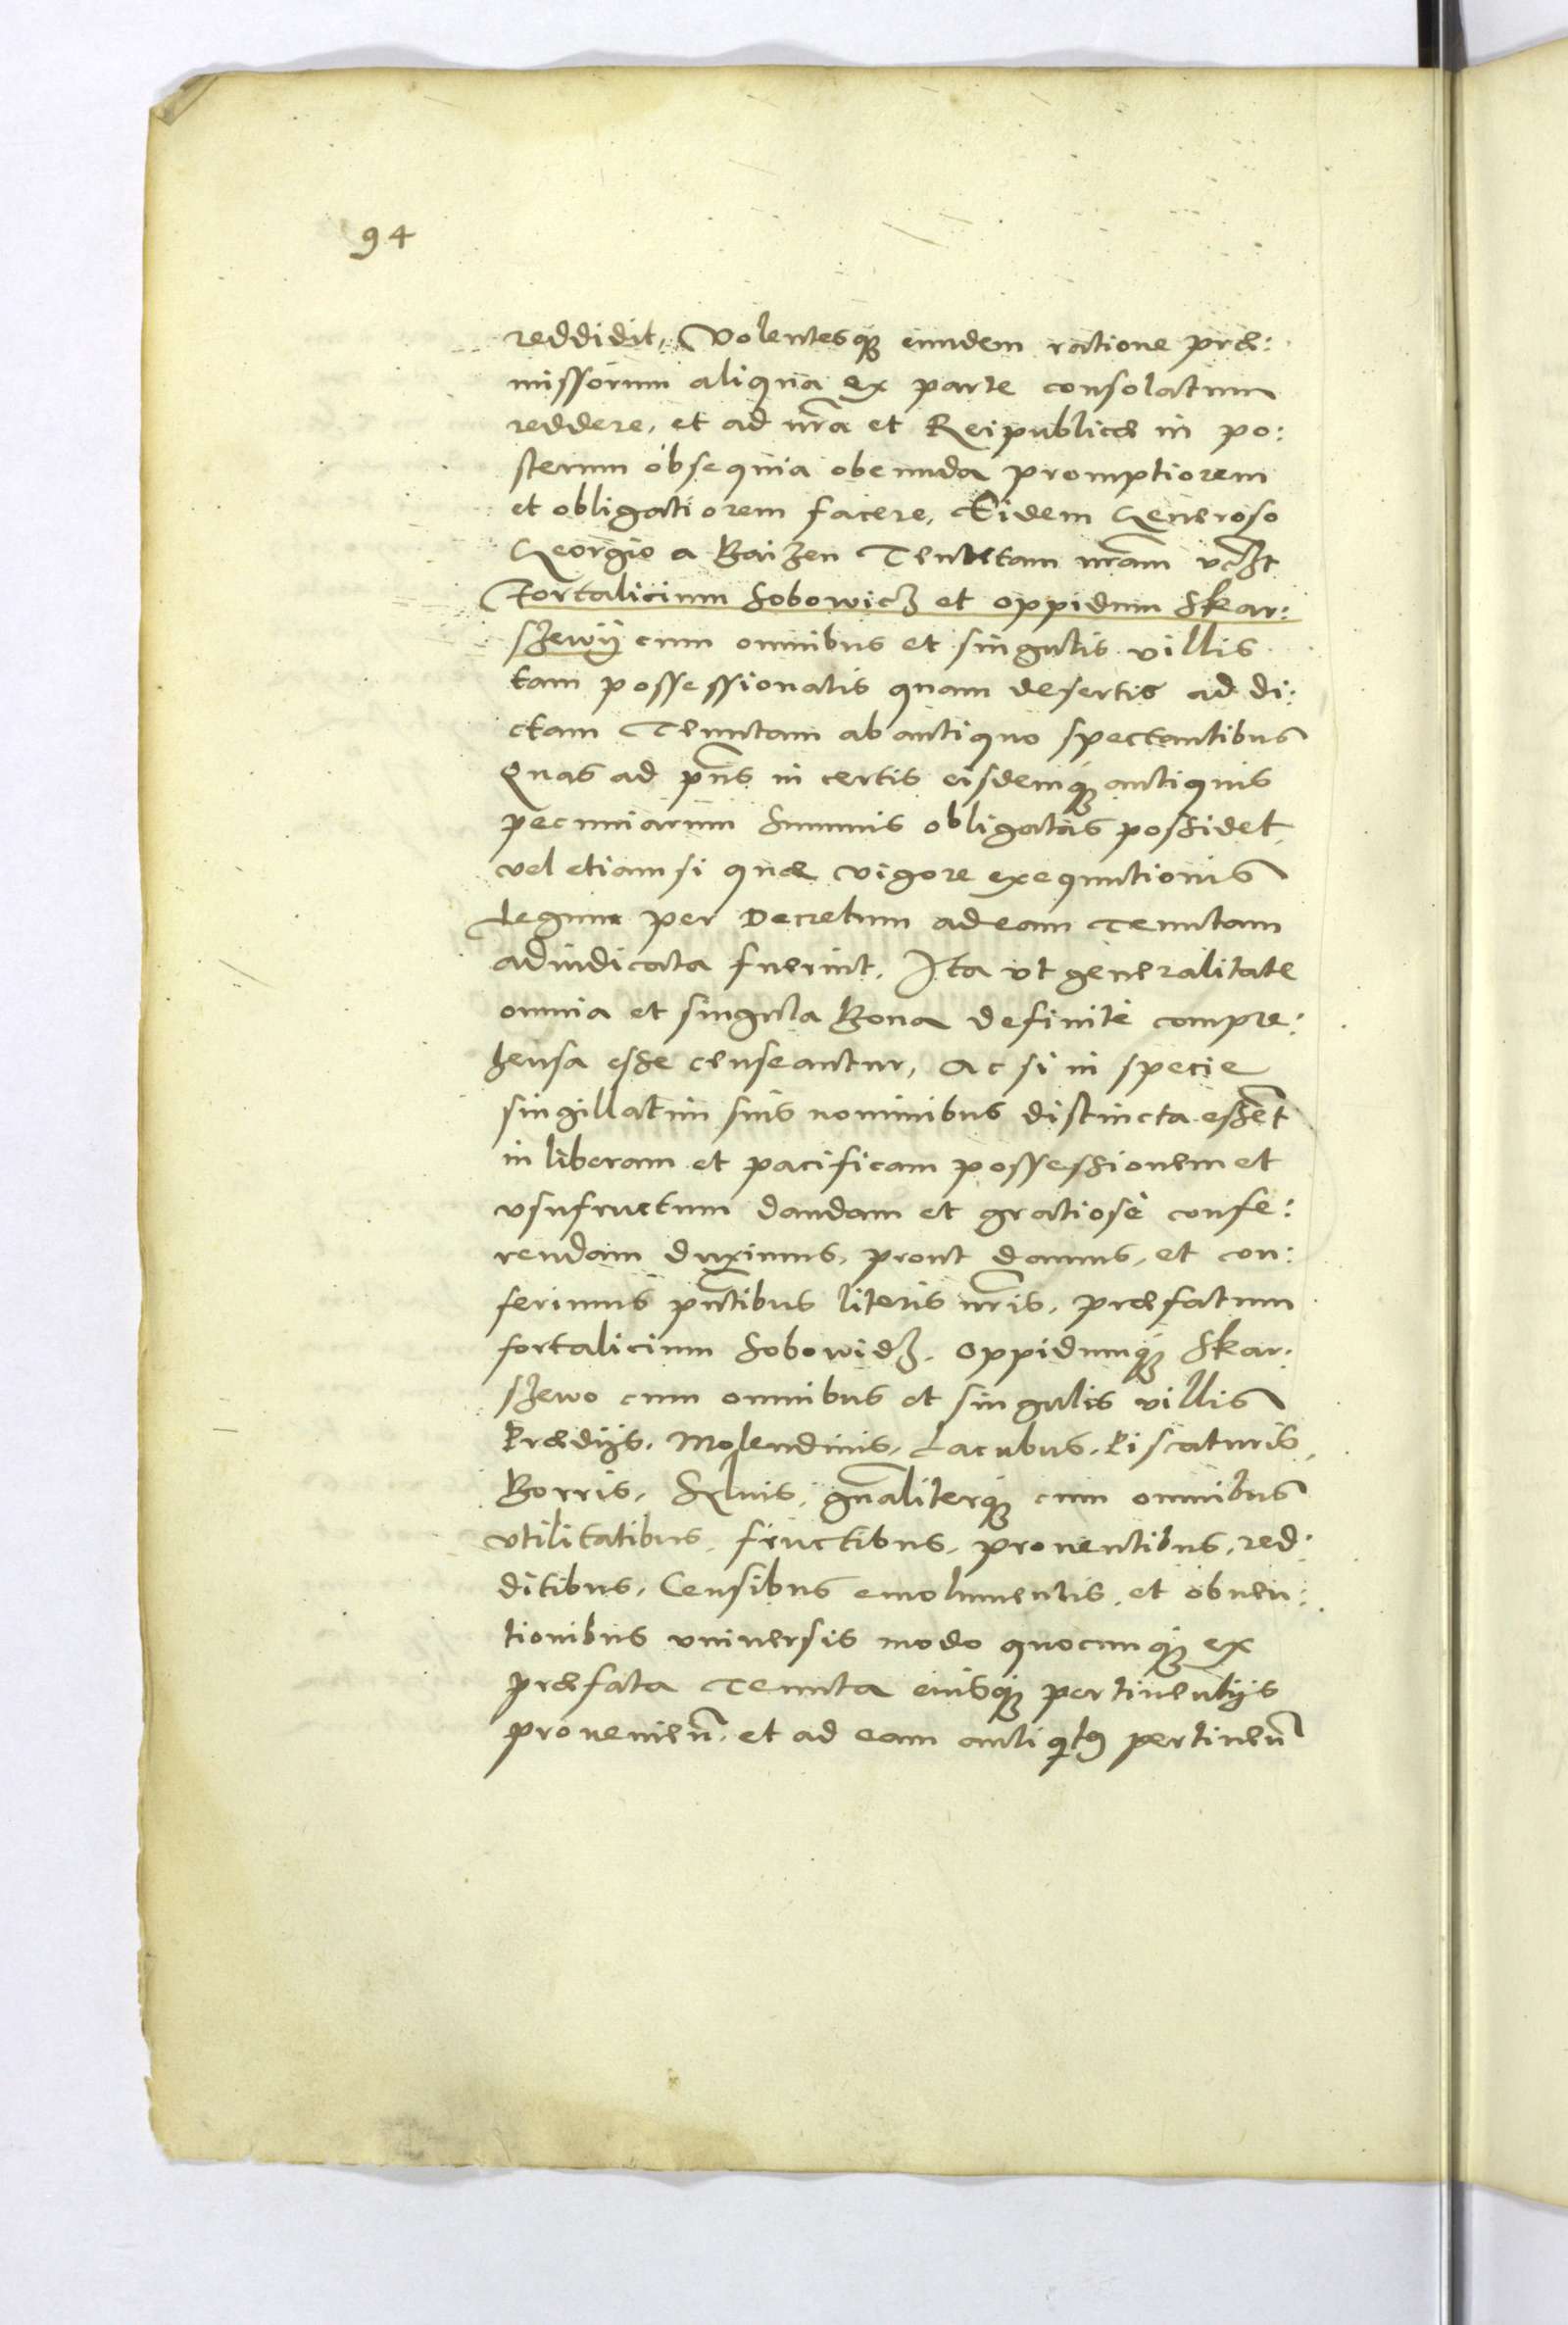 94
reddidit, Volentesq₃ eundem ratione præ:
missorum aliqua ex parte consolatum
reddere, et ad nr̃a et Reipublicæ in po:
sterum obsequia obeunda promptiorem
et obligatiorem facere, Eidem Generoso
Georgio a Baizen Tenutam nr̃am
Fortalicium Sobowicz et oppidum Skar:
szewÿ cum omnibus et singulis villis
tam possessionatis quam desertis ad di:
ctam Tenutam ab antiquo spectantibus
Quas ad pñs in certis eisdemq₃ antiquis
pecuniarum summis obligatas possidet,
vel etiam si quæ vigore exequutionis
Legum per Decretum ad eam Tenutam
adiudicata fuerint, Ita vt generalitate
omnia et singula Bona definitè compre:
hensa esse censeantur, Ac si in specie
singillatim suis nominibus distincta essẽt
in liberam et pacificam possessionem et
vsufructum dandam et gratiosè confe:
rendam duximus, prout damus, et con:
ferimus pñtibus literis nr̃is, præfatum
fortalicium Sobowidz, Oppidumq₃ Skar:
szewo cum omnibus et singulis villis
Prædijs, Molendinis, Lacubus, Piscaturis,
Borris, Syluis, gñaliterq₃ cum omnibus
vtilitatibus, fructibus, prouentibus, red:
ditibus, Censibus emolumentis, et obuen:
tionibus vniuersis modo quocunq₃ ex
præfata Tenuta eiusq₃ pertinentijs
provenieñ, et ad eam antiqitꝰ pertineñ